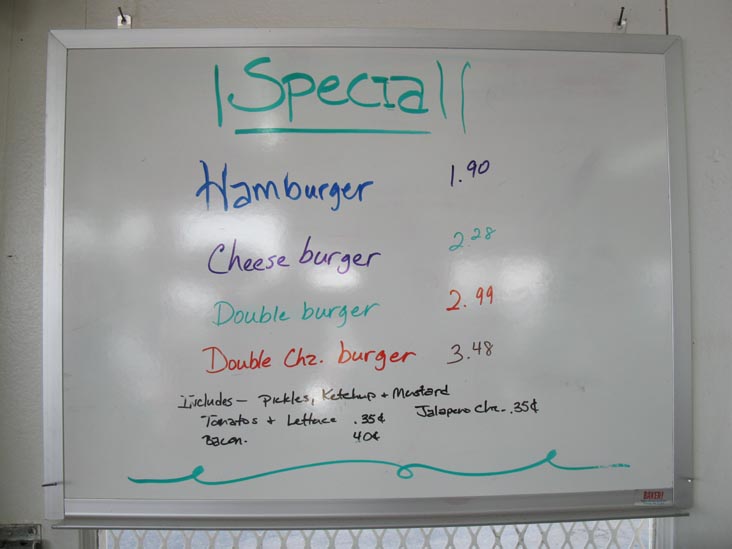 Special
Hamburger 1.90
Cheese burger 2.28
Double burger 2.99
Double Chz. burger 3.48
Includes - Pickles, Ketchup + Mustard
Tomatos + Lettuce .35¢ Jalapeno Chz. .35¢
Bacon. 40¢
BAKER!